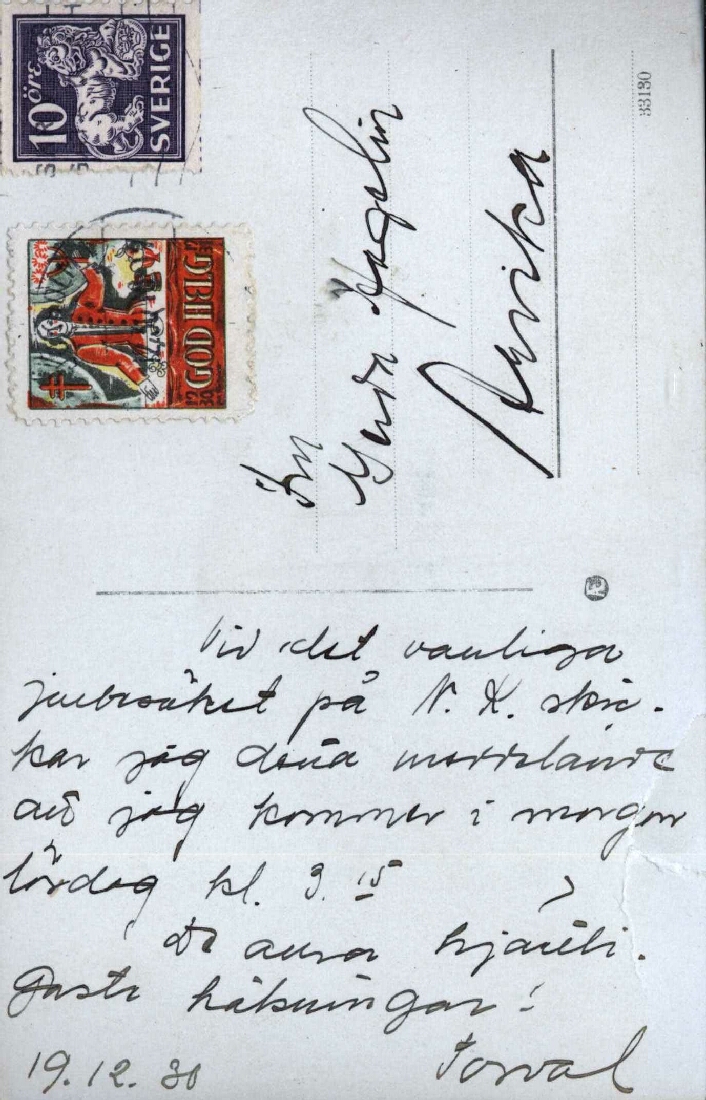 10 öre
SVERIGE
GOD HELG
19 30
33130
Gerda
Arvika
Vid det vanliga
julbesöket på N. K. skic-
kar jag detta meddelande
att jag kommer i morgon
lördag kl. 3.15
De allra hjärtli-
gaste hälsningar!
19.12.30
Torval